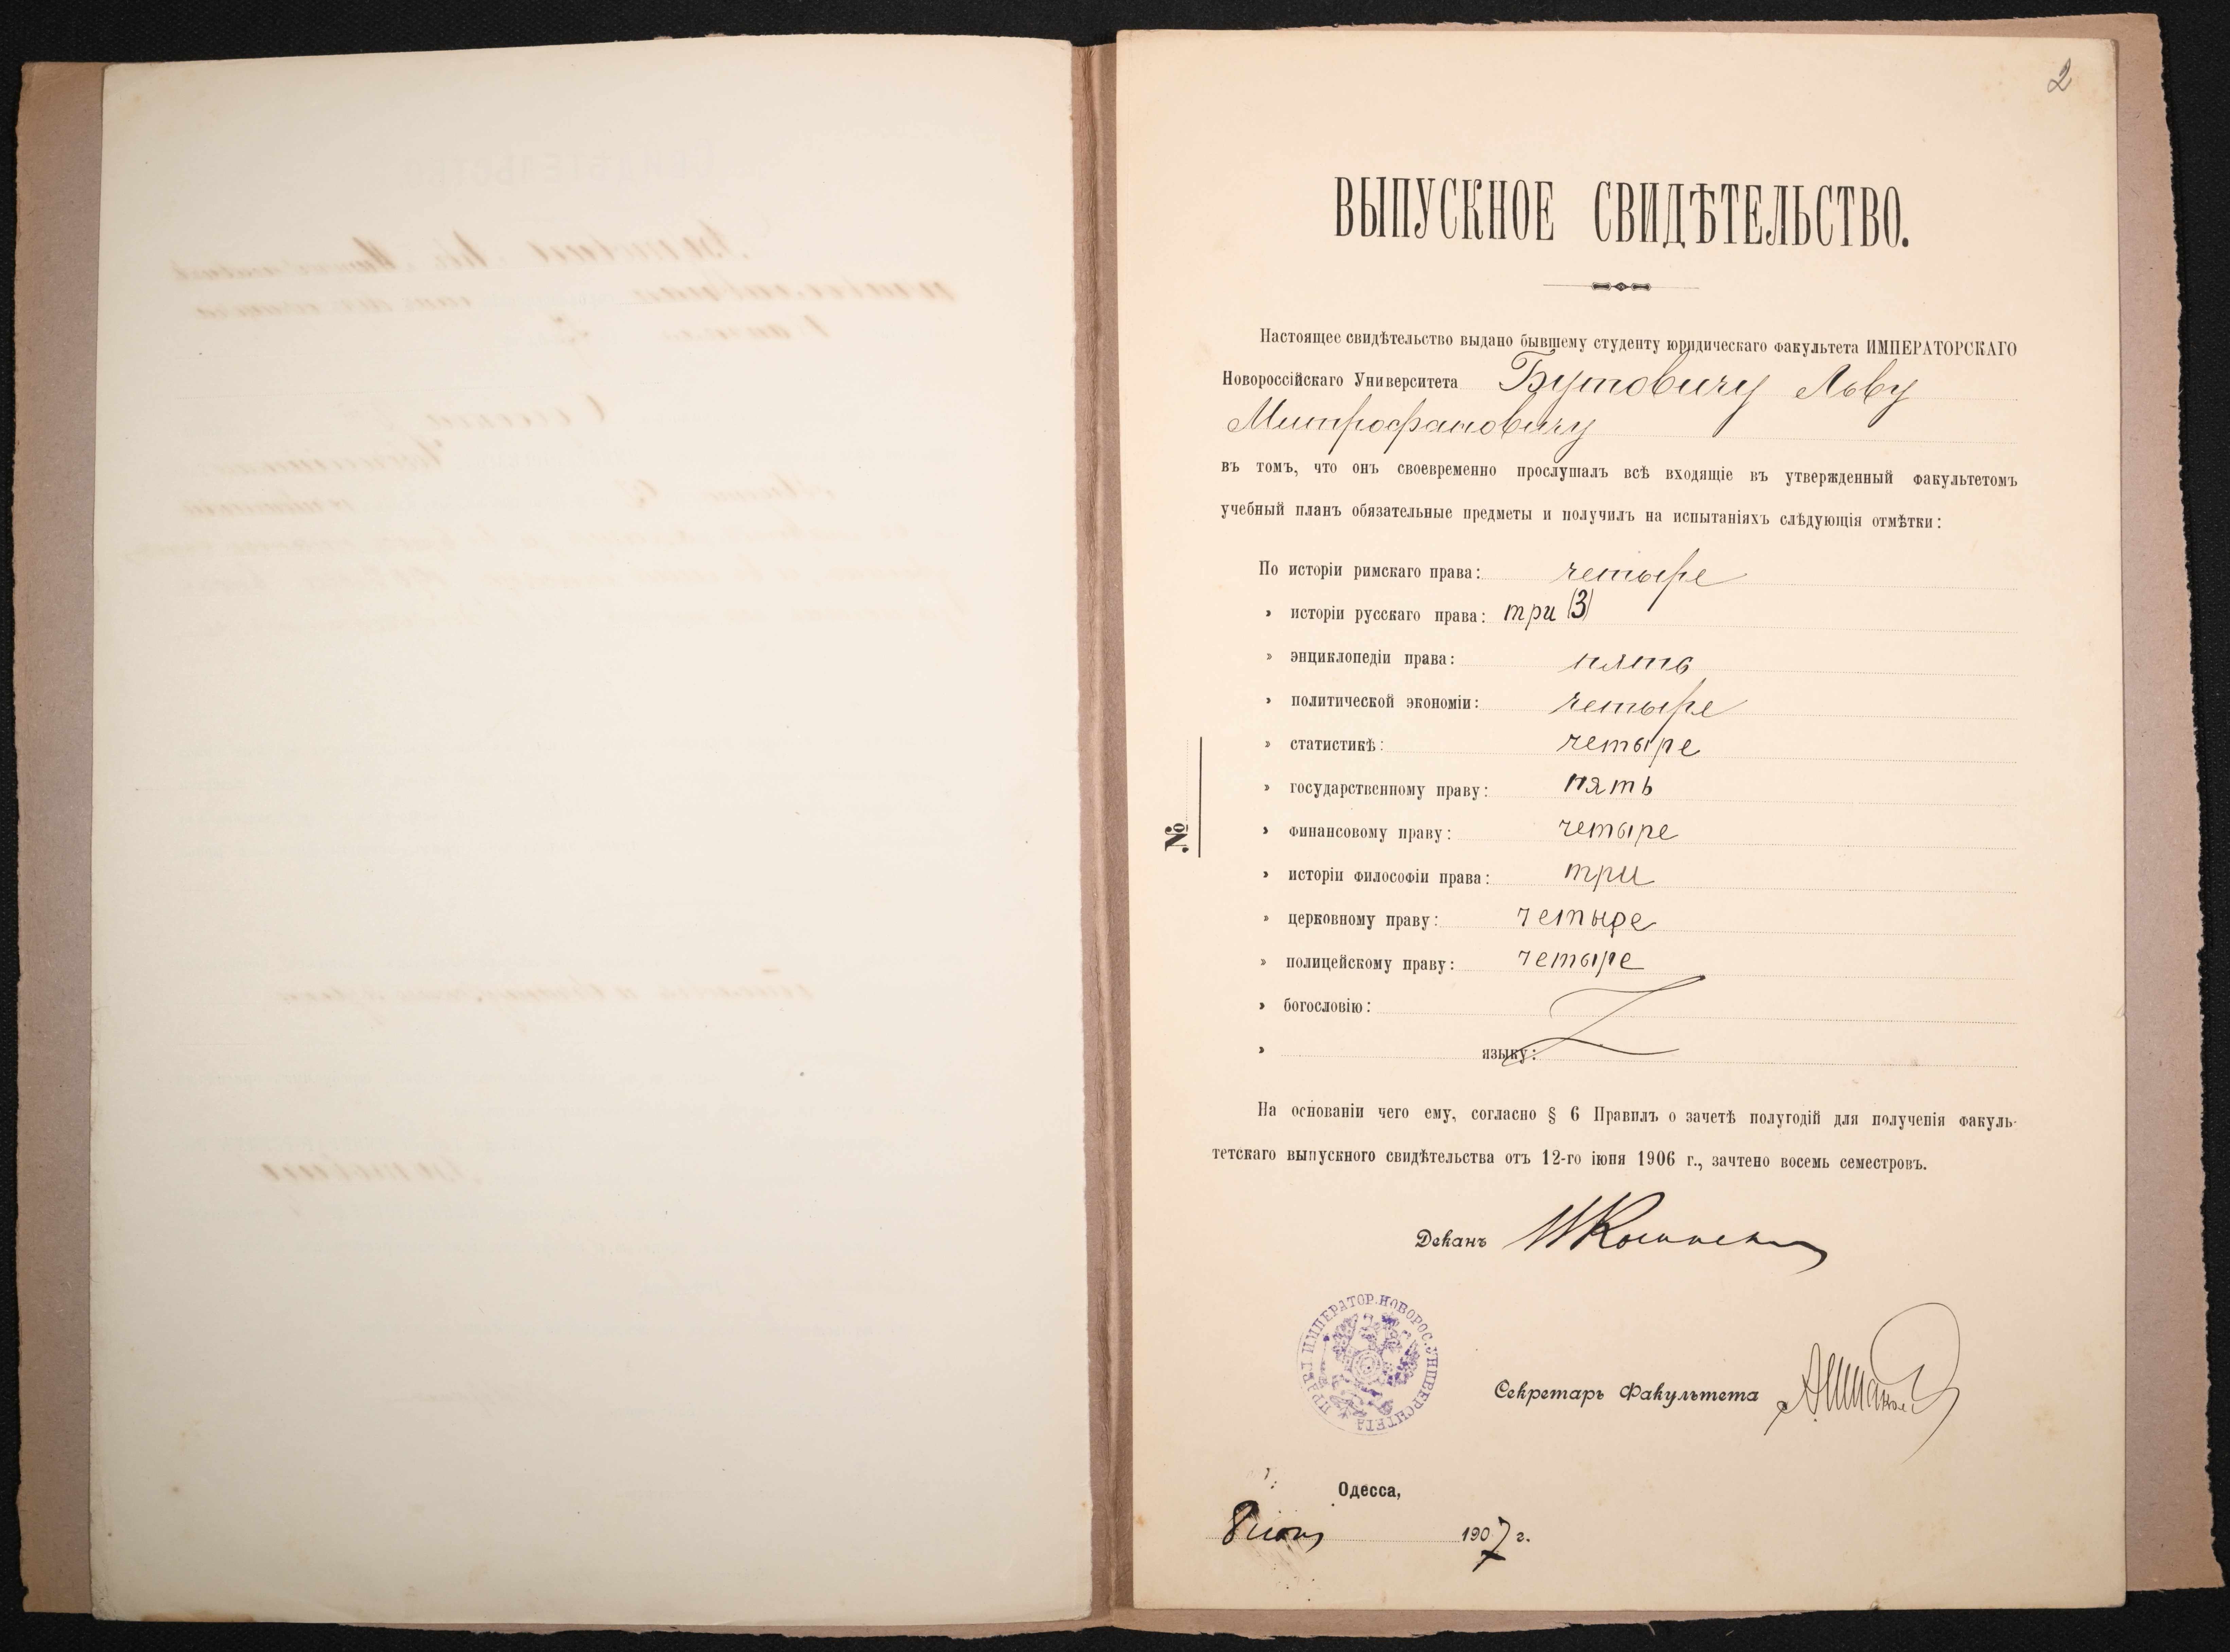 2
ВЫПУСКНОЕ СВИДѢТЕЛЬСТВО.
Настоящее свидѣтельство выдано бывшему студенту юридическаго факультета ИМПЕРАТОРСКАГО
Новороссійскаго Университета Бутовичу Льву
Митрофановичу
въ томъ, что онъ своевременно прослушалъ всѣ входящіе въ утвержденный факультетомъ
учебный планъ обязательные предметы и получилъ на испытаніяхъ слѣдующія отмѣтки:
По исторіи римскаго права: четыре
» исторіи русскаго права: три (3)
» энциклопедіи права: пять
» политической экономіи: четыре
» статистикѣ: четыре
» государственному праву: пять
» финансовому праву: четыре
» исторіи философіи права: три
» церковному праву: четыре
» полицейскому праву: четыре
» богословію:
» языку:
№
На основаніи чего ему, согласно § 6 Правилъ о зачетѣ полугодій для полученія факуль-
тетскаго выпускного свидѣтельства отъ 12-го іюня 1906 г., зачтено восемь семестровъ.
Деканъ
ПРАВЛ ИМПЕРАТОР. НОВОРОС. УНИВЕРСИТЕТА
Секретарь Факультета
Одесса,
8 1907 г.